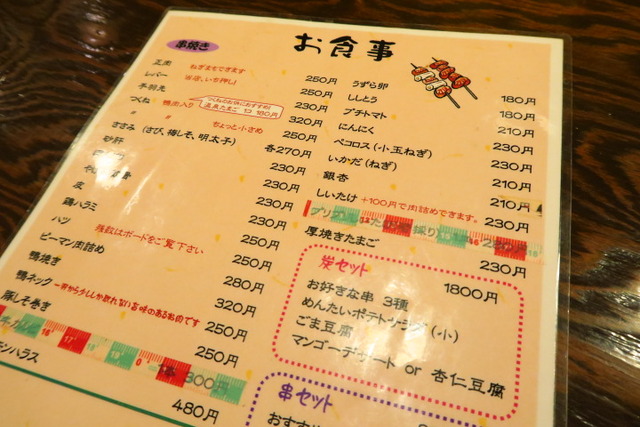 お食事
串焼き
正肉 ねぎまもできます 250円
レバー 当店、いち押し! 250円
手羽先 230円
つくね 軟骨入り 320円
つくねのお供におすすめ!
温泉たまご 180円
〃 〃 ちょっと小さめ 250円
ささみ (さび、梅しそ、明太子) 各270円
砂肝 230円
230円
230円
皮 230円
鶏ハラミ 230円
ハツ 230円
種類はボードをご覧下さい
ピーマン肉詰め 250円
鴨焼き 280円
鴨ネック 320円
豚しそ巻き 250円
250円
300円
ハラス 480円
うずら卵 180円
ししとう 180円
プチトマト 210円
にんにく 230円
ペコロス (小玉ねぎ) 230円
いかだ (ねぎ) 210円
銀杏 210円
しいたけ +100円で肉詰めできます。 210円
厚焼きたまご 230円
炭セット 1800円
お好きな串 3種
めんたいポテトサラダ (小)
ごま豆腐
マンゴーデザート or 杏仁豆腐
串セット
おすすめ